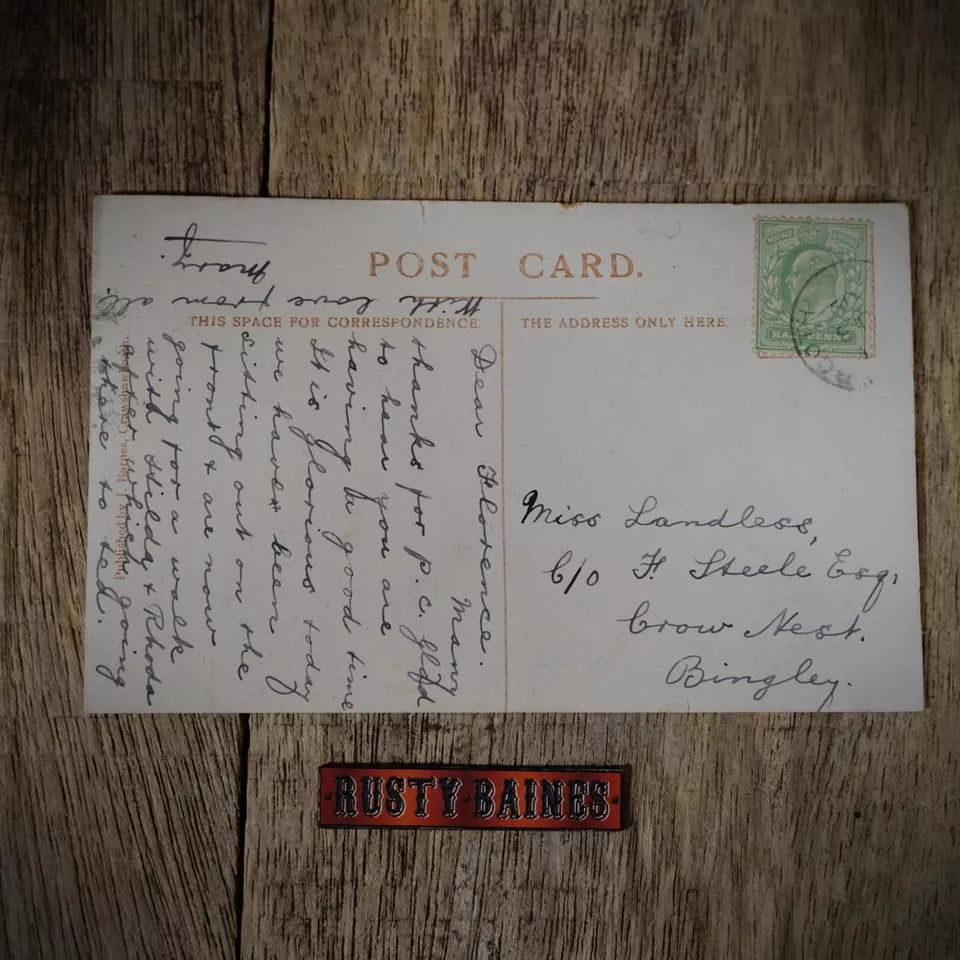 POST CARD.
THIS SPACE FOR CORRESPONDENCE.
THE ADDRESS ONLY HERE.
HALFPENNY
Dear Florence.
Many
thanks for p.c. Glad
to hear you are
having a good time
It is glorious today
we have been
sitting out on the
front & are now
going for a walk
with Hilda & Rhoda
after which going
there to ted.
With love from all.
Mary.
Published by J. Baines,
Miss Landless,
C/o F. Steele Esq.
Crow Nest.
Bingley.
RUSTY BAINES